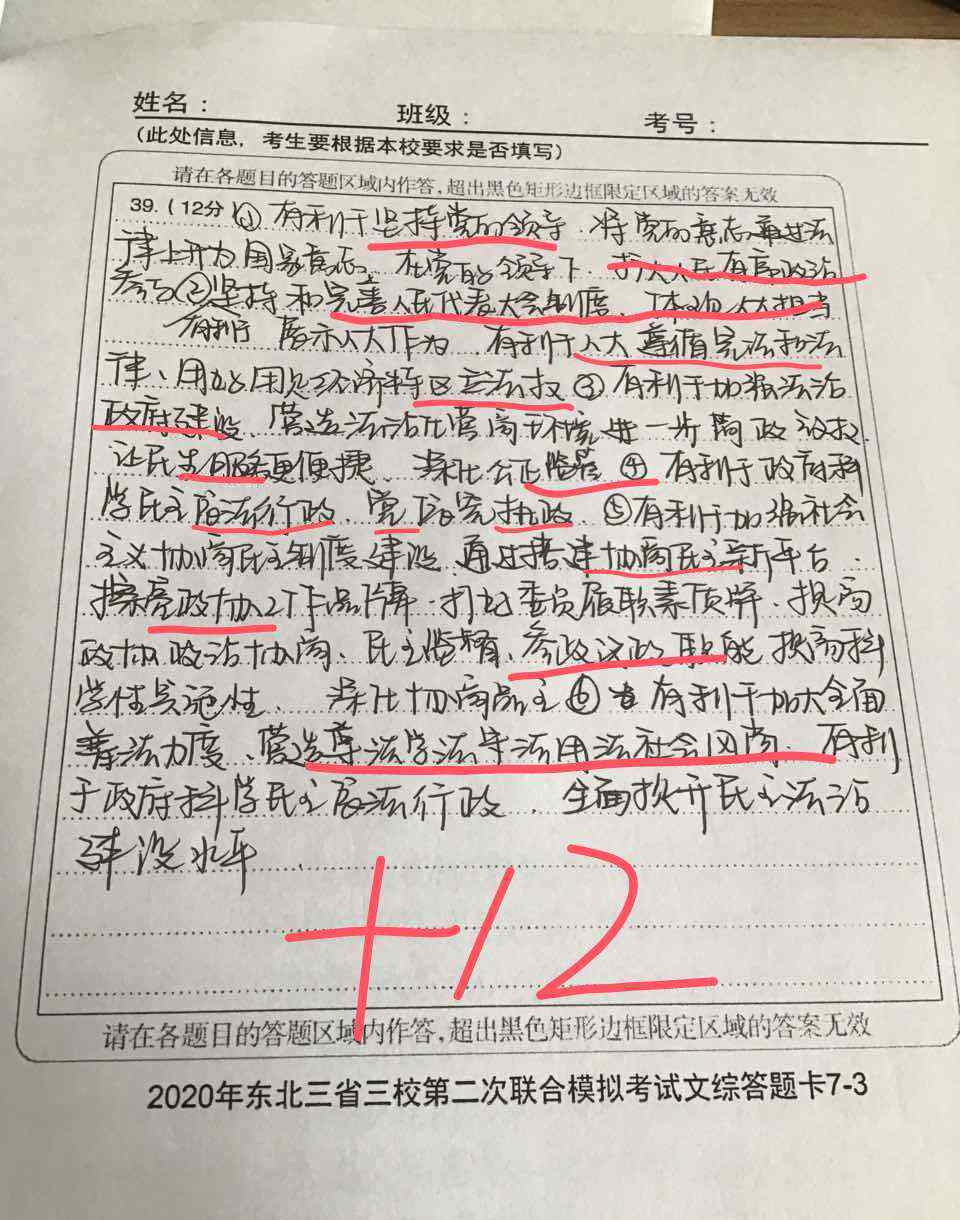 姓名：　班级：　考号：
(此处信息，考生要根据本校要求是否填写)
请在各题目的答题区域内作答，超出黑色矩形边框限定区域的答案无效
39.(12分)①有利于坚持党的领导．将党的意志通过法
律上升为国家意志．在党的领导下．扩大人民有序政治
参与②坚持和完善人民代表大会制度、体现人大担当
有利于展示人大作为．有利于人大遵循宪法和法
律、用好用足经济特区立法权③有利于加强法治
政府建设、营造法治化营商环境进一步简政放权．
让民生服务更便捷、深化公正监督④有利于政府科
学民主依法行政、党依宪执政．⑤有利于加强社会
主义协商民主制度建设．通过搭建协商民主新平台．
擦亮政协工作品牌．打好委员履职素质牌．提高
政协政治协商、民主监督、参政议政职能提高科
学性实施性．深化协商民主⑥有利于加大全面
普法力度、营造尊法学法守法用法社会风尚．有利
于政府科学民主依法行政．全面提升民主法治
建设水平．
+12
请在各题目的答题区域内作答，超出黑色矩形边框限定区域的答案无效
2020年东北三省三校第二次联合模拟考试文综答题卡7-3